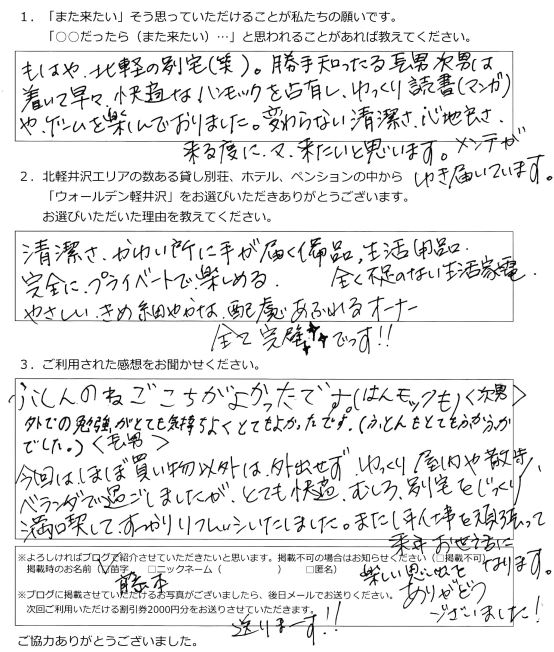 1．「また来たい」そう思っていただけることが私たちの願いです。
「○○だったら（また来たい）…」と思われることがあれば教えてください。
もはや、北軽の別宅(笑)。勝手知ったる長男次男は
着いて早々、快適なハンモックを占有し、ゆっくり読書(マンガ)
や、ゲームを楽しんでおりました。変わらない清潔さ、心地良さ、
来る度に、又、来たいと思います。メンテが
ゆき届いています。
2．北軽井沢エリアの数ある貸し別荘、ホテル、ペンションの中から
「ウォールデン軽井沢」をお選びいただきありがとうございます。
お選びいただいた理由を教えてください。
清潔さ、かわいい所に手が届く備品、生活用品、
完全に、プライベートで楽しめる、 全く不足のない生活家電、
やさしい、きめ細やかな、配慮あふれるオーナー
全て完璧でっす!!
3．ご利用された感想をお聞かせください。
ふとんのねごこちがよかったです。(はんモックも)<次男>
外での勉強がとても気持ちよくとてもよかったです。(ふとんもとてもふかふか
でした。)<長男>
今回は、ほぼ買い物以外は、外出せず、ゆっくり屋内や散歩、
ベランダで過ごしましたが、とても快適、むしろ、別宅をじっくり
満喫してすっかりリフレッシュいたしました。またしばらく仕事を頑張って
来年お世話に
なります。
楽しい思い出を
ありがとう
ございました!
※よろしければブログで紹介させていただきたいと思います。掲載不可の場合はお知らせください（□掲載不可）
掲載時のお名前（☑苗字 □ニックネーム（ ）□匿名）
藤本
※ブログに掲載させていただけるお写真がございましたら、後日メールでお送りください。
次回ご利用いただける割引券2000円分をお送りさせていただきます。
送りまーす!!
ご協力ありがとうございました。